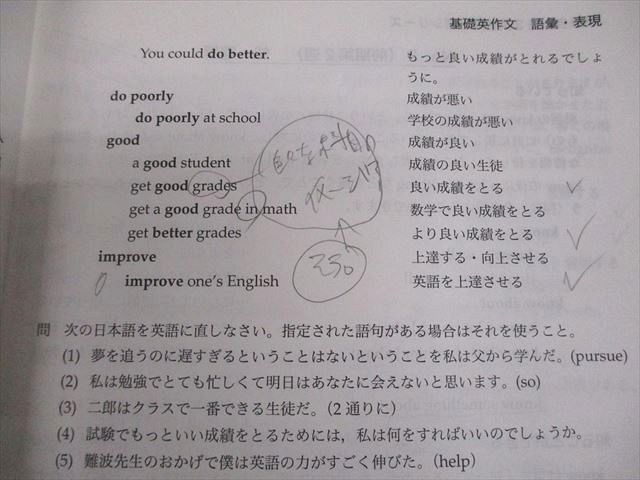 基礎英作文 語彙・表現
You could do better. もっと良い成績がとれるでしょ
うに。
do poorly 成績が悪い
do poorly at school 学校の成績が悪い
good 成績が良い
a good student 成績の良い生徒
get good grades 良い成績をとる
get a good grade in math 数学で良い成績をとる
get better grades より良い成績をとる
improve 上達する・向上させる
improve one's English 英語を上達させる
問 次の日本語を英語に直しなさい。指定された語句がある場合はそれを使うこと。
(1) 夢を追うのに遅すぎるということはないということを私は父から学んだ。(pursue)
(2) 私は勉強でとても忙しくて明日はあなたに会えないと思います。(so)
(3) 二郎はクラスで一番できる生徒だ。(2通りに)
(4) 試験でもっといい成績をとるためには,私は何をすればいいのでしょうか。
(5) 難波先生のおかげで僕は英語の力がすごく伸びた。(help)